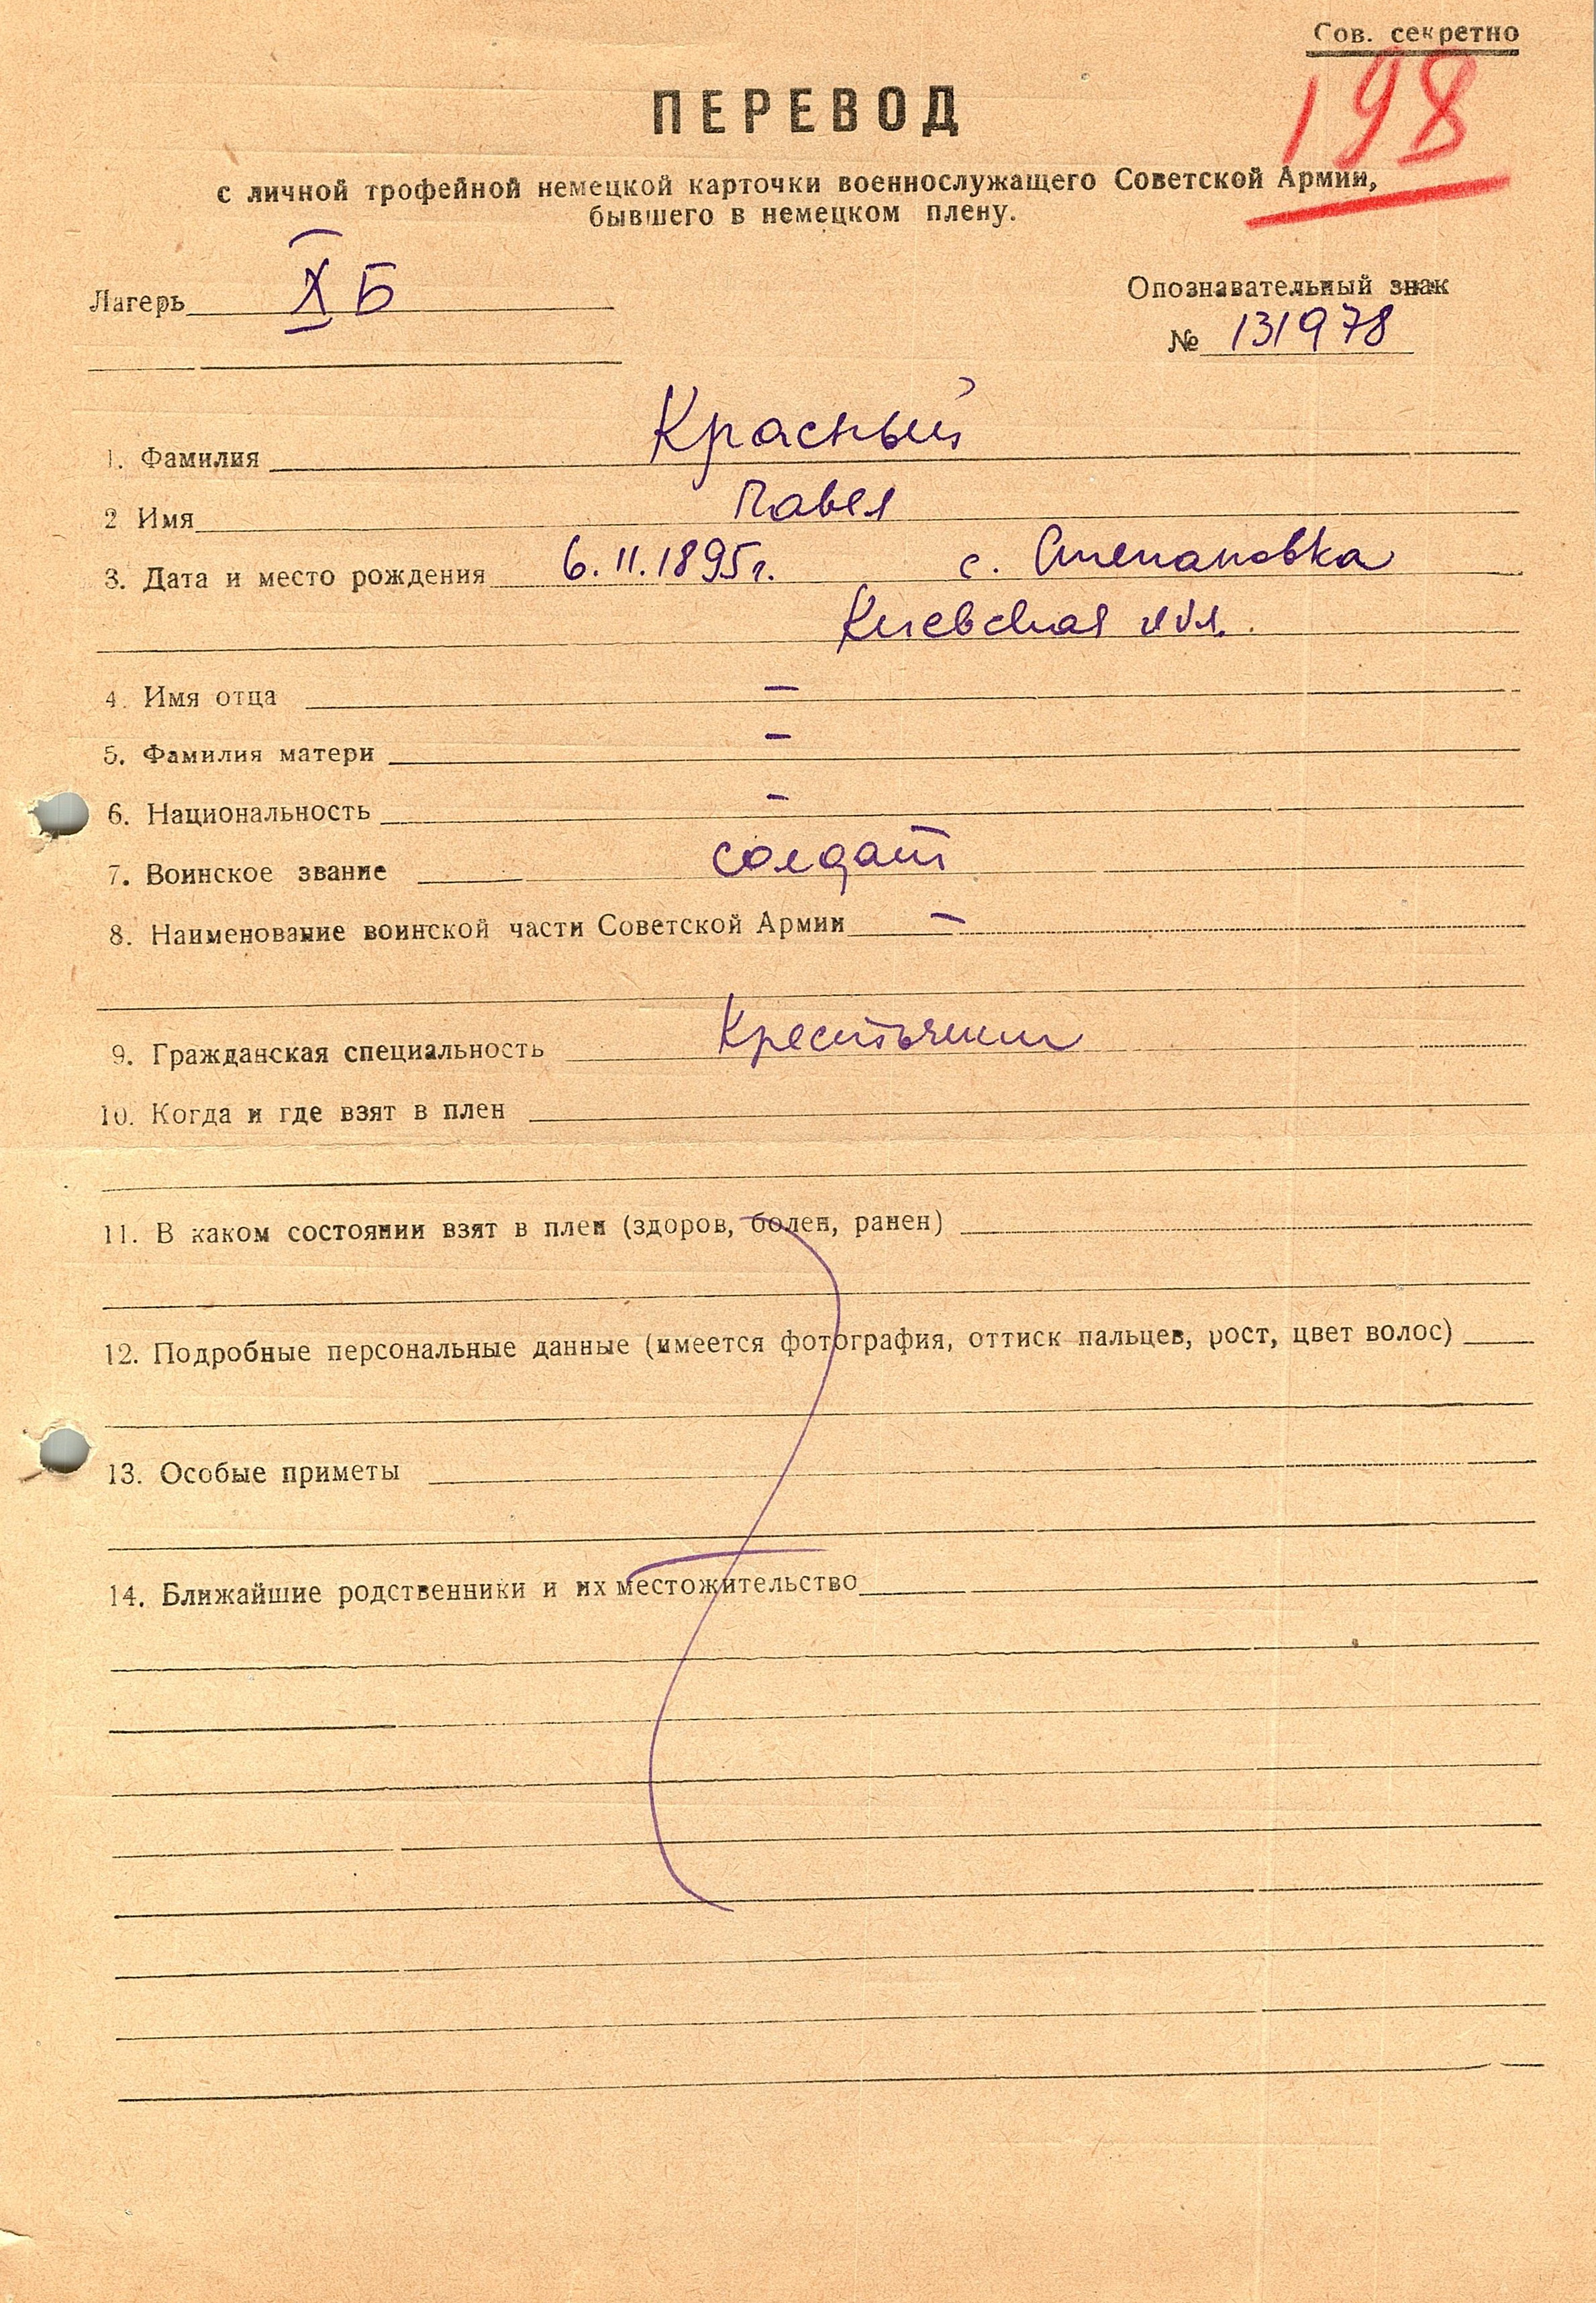 Сов. секретно
198
ПЕРЕВОД
с личной трофейной немецкой карточки военнослужащего Советской Армии,
бывшего в немецком плену.
Лагерь X Б
Опознавательный знак
№ 131978
1. Фамилия Красный
2 Имя Павел
3. Дата и место рождения 6.11.1895г. с. Степановка
Киевская обл.
4. Имя отца –
5. Фамилия матери –
6. Национальность –
7. Воинское звание солдат
8. Наименование воинской части Советской Армии –
9. Гражданская специальность Крестьянин
10. Когда и где взят в плен
11. В каком состоянии взят в плен (здоров, болен, ранен)
12. Подробные персональные данные (имеется фотография, оттиск пальцев, рост, цвет волос)
13. Особые приметы
14. Ближайшие родственники и их местожительство